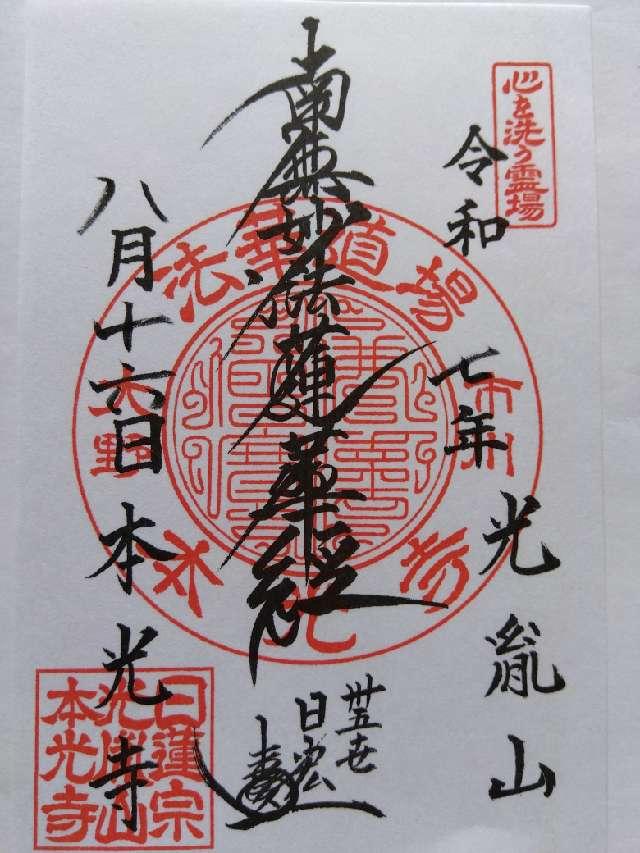 心を洗う霊場
令和七年
光胤山
南無妙法蓮華経
卅五世
日宏
八月十六日
本光寺
法華道場
市川
大野
本光寺
日蓮宗
光胤山
本光寺